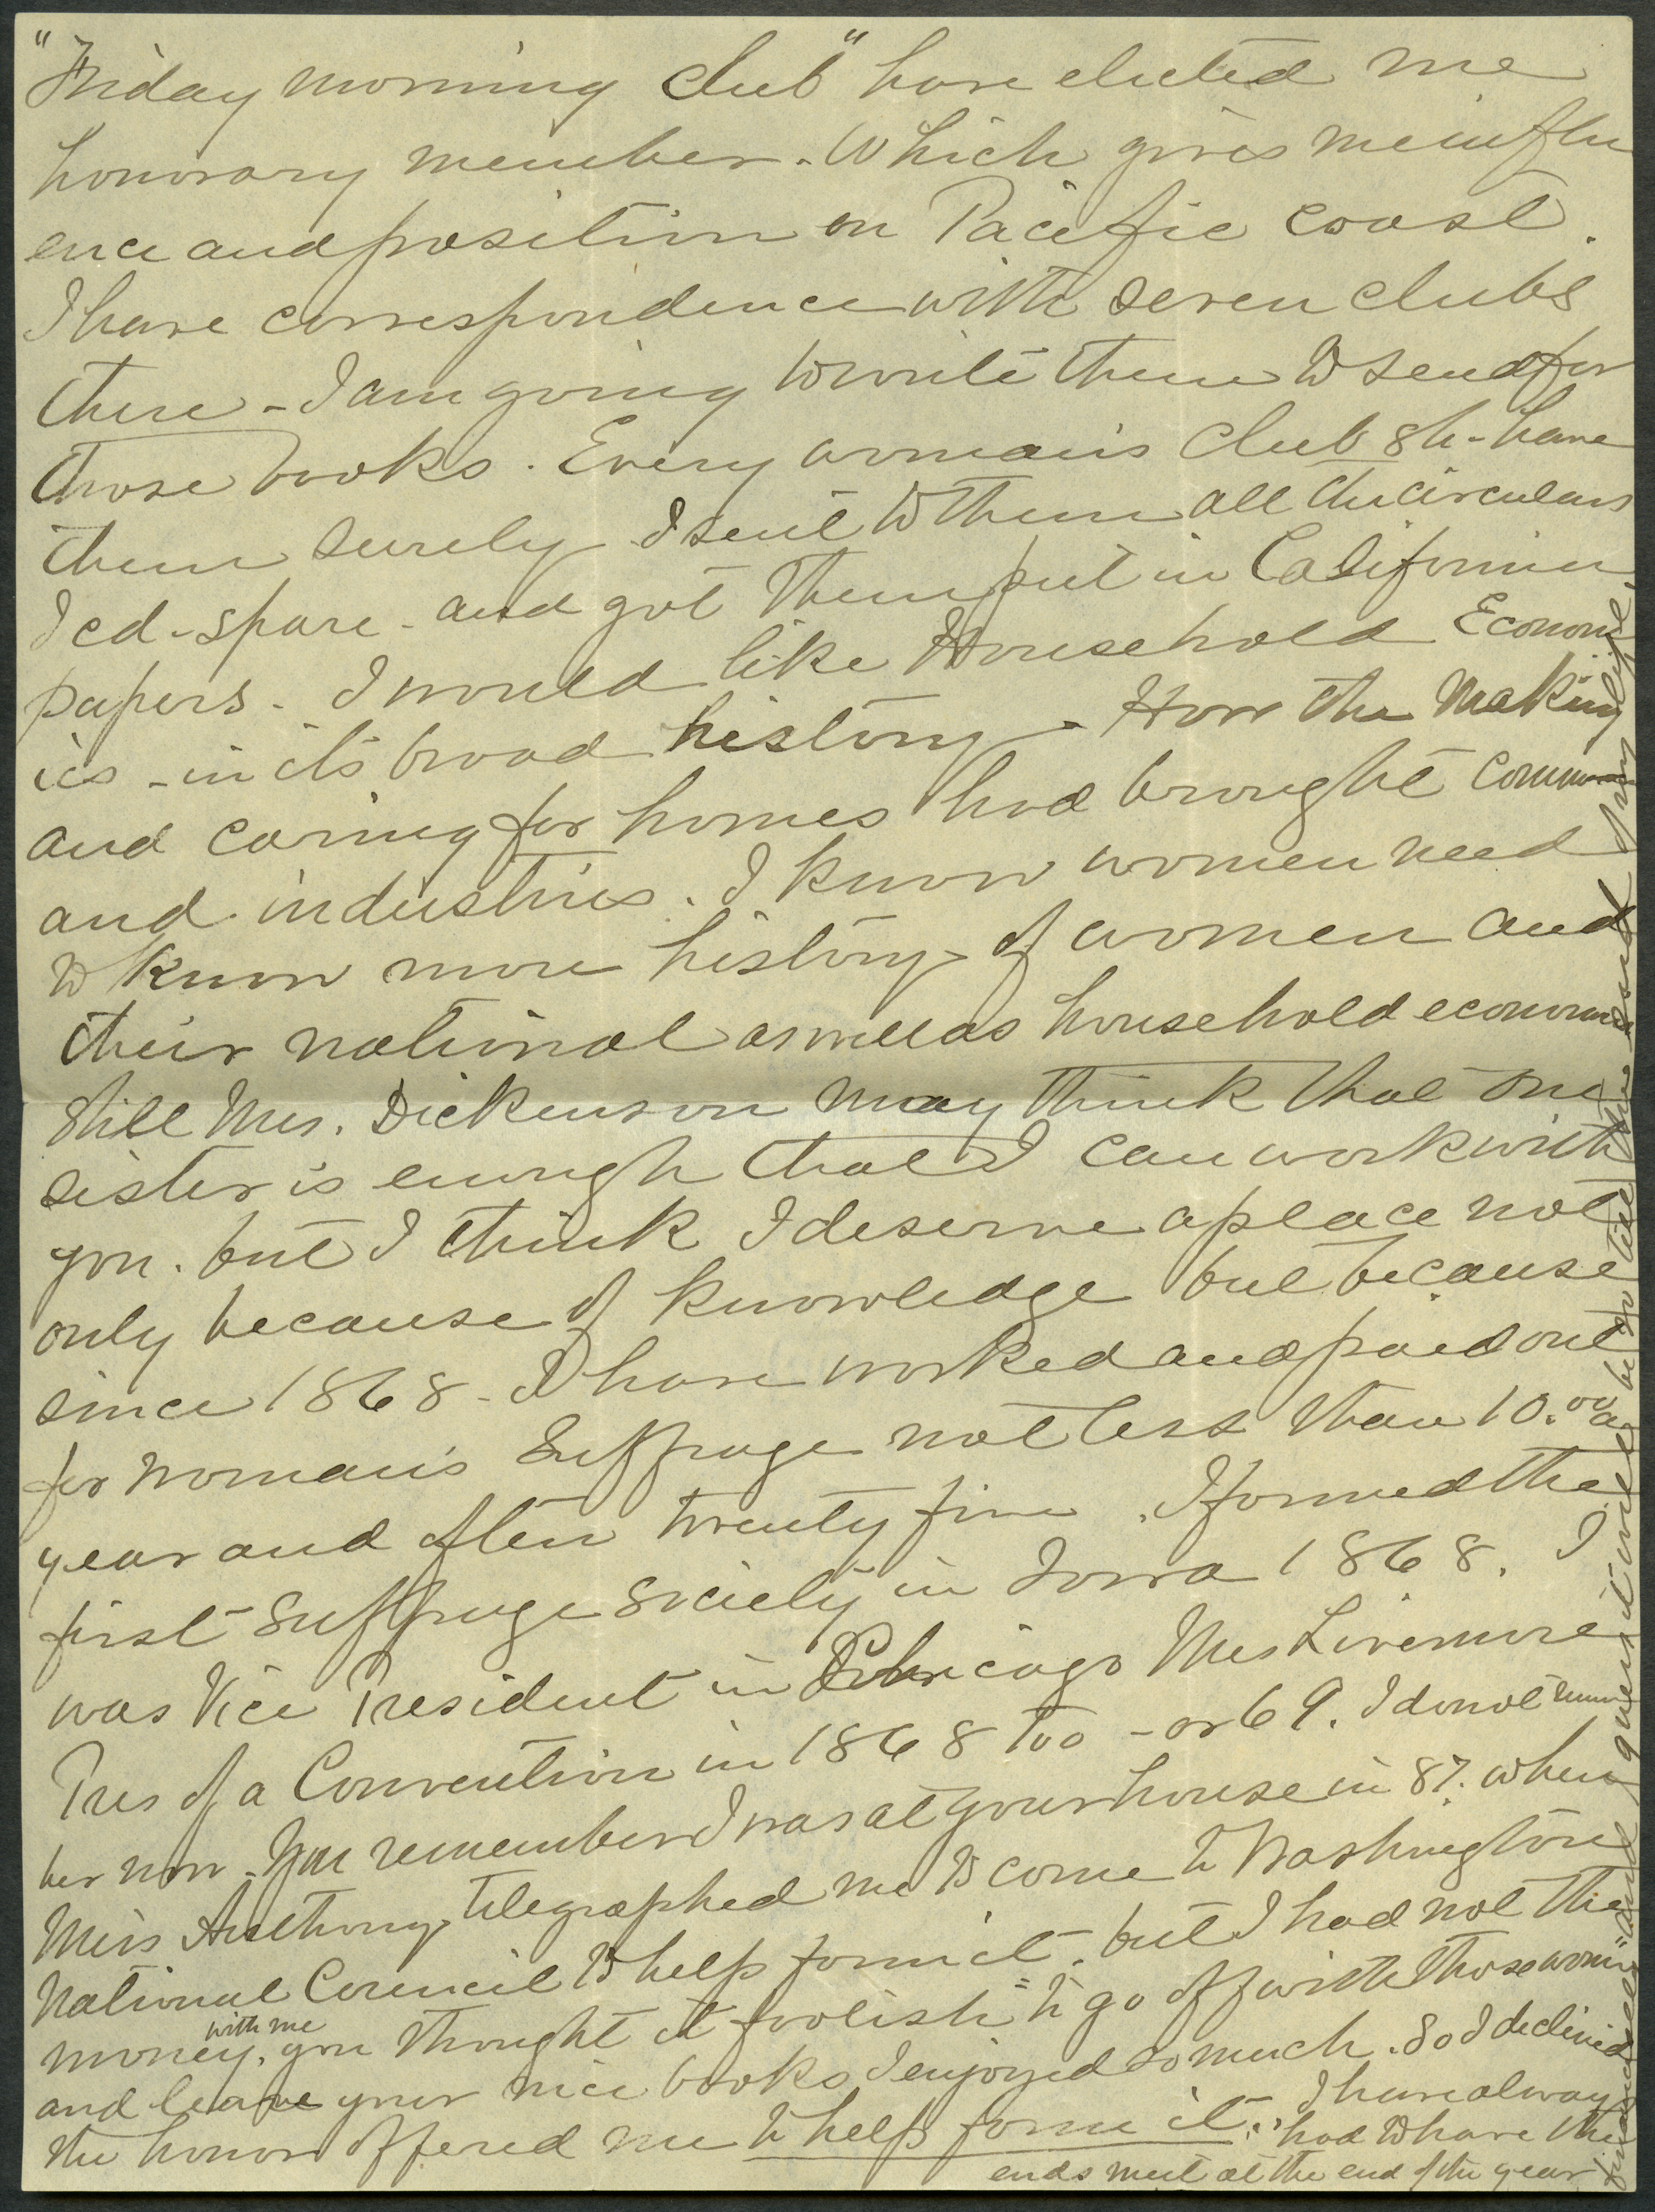 "Friday morning club" have elected me
honorary member. Which gives me influ
ence and position on Pacific coast.
I have correspondence with seven clubs
there - I am going to write them to send for
those books. Every woman's club sh- have
them surely I sent to them all the circulars
I cd - spare - and got them put in California
papers - I would like Household Econom
ics - in its broad history - How the making
and caring for homes had brought Commerce
and industries. I know women need
to know more history of women and
their national as well as household economies
still Mrs. Dickenson may think that one
sister is enough that I can work with
you. but I think I deserve a place not
only because of knowledge but because
since 1868 - I have worked and paid out
for Woman's Suffrage not less than 10.00 a
year and often twenty five. I formed the
first Suffrage Society in Iowa 1868. I
was Vice President in Chicago Mrs Livermore
Pres of a Convention in 1868 too - or 69. I do not remem
ber now - You remember I was at your house in 87. when
Miss Anthony telegraphed me to come to Washington
National Council to help form it. but I had not the
money, with me you thought it foolish "to go off with those women"
and leave your nice books I enjoyed so much. So I declined
the honor offered me to help form it. I have always
had to have the
ends meet at the end of the year
financially and I guess it will be so till the end of my life.